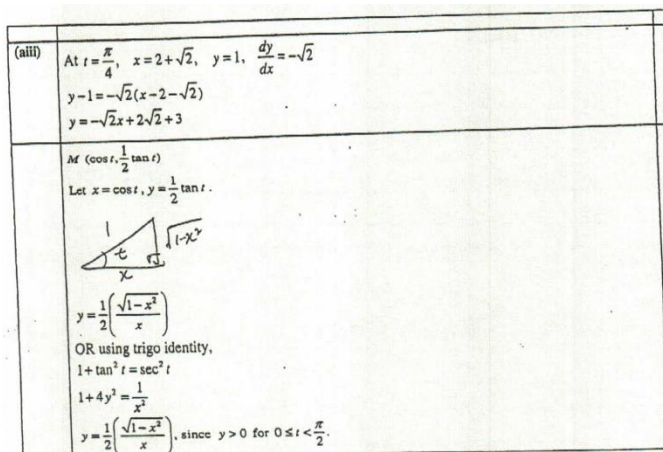 (aiii) At t = π/4, x = 2+√2, y = 1, dy/dx = −√2
y−1 = −√2(x−2−√2)
y = −√2x+2√2+3
M (cos t, 1/2 tan t)
Let x = cos t, y = 1/2 tan t.
1
t
√1-x²
x
y = 1/2(√(1−x²)/x)
OR using trigo identity,
1+tan² t = sec² t
1+4y² = 1/x²
y = 1/2(√(1−x²)/x), since y > 0 for 0 ≤ t < π/2.